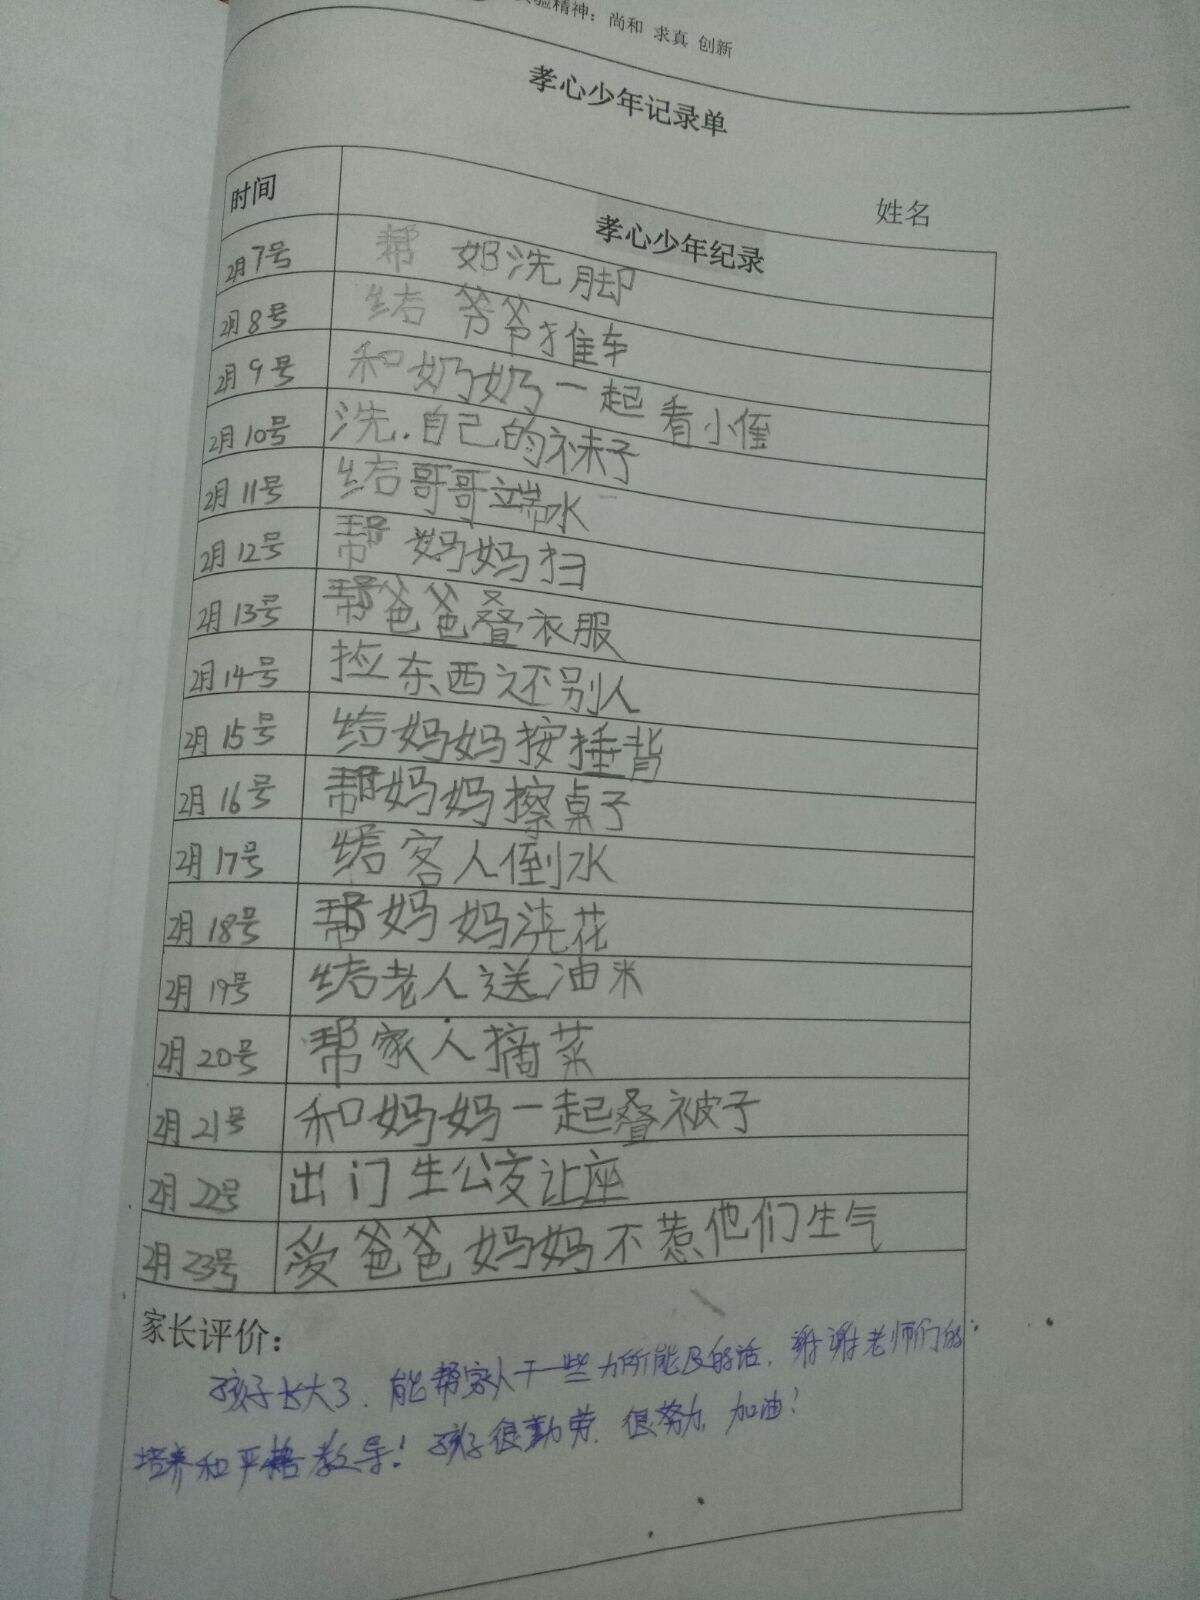 验精神：尚和 求真 创新
孝心少年记录单
姓名
时间 孝心少年纪录
2月7号 帮 妈洗脚
2月8号 给 爷爷推车
2月9号 和奶奶一起看小侄
2月10号 洗.自己的袜子
2月11号 给哥哥端水
2月12号 帮 妈妈扫
2月13号 帮爸爸叠衣服
2月14号 捡东西还别人
2月15号 给妈妈按捶背
2月16号 帮妈妈擦桌子
2月17号 给客人倒水
2月18号 帮妈妈浇花
2月19号 给老人送油米
2月20号 帮家人摘菜
2月21号 和妈妈一起叠被子
2月22号 出门坐公交让座
2月23号 爱爸爸妈妈不惹他们生气
家长评价：
孩子长大了.能帮家人干一些力所能及的活.谢谢老师们的
培养和严格教导！孩子很勤劳.很努力.加油！